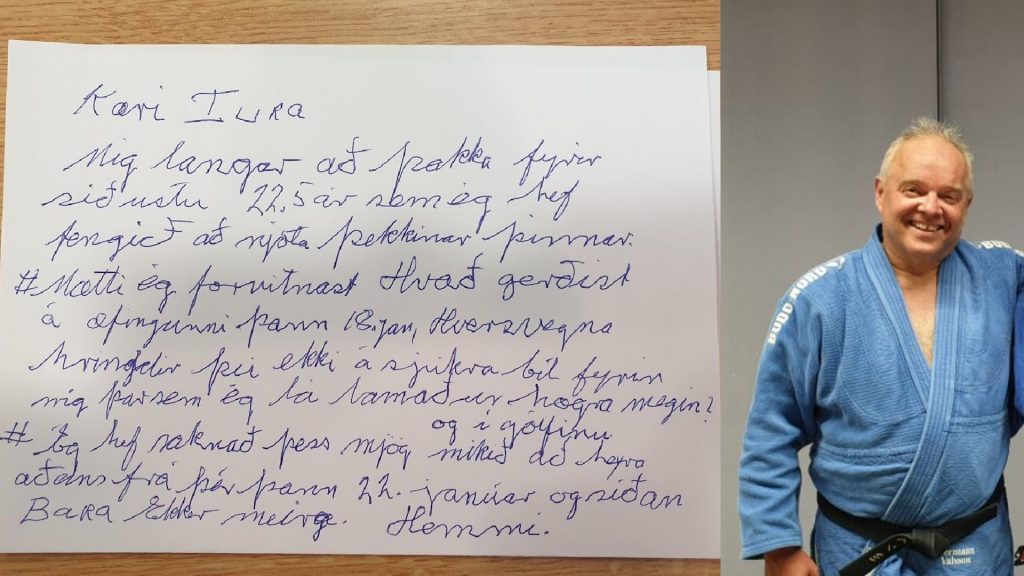 Kæri Iura
Mig langar að þakka fyrir
síðustu 22,5 ár sem ég hef
fengið að njóta þekkinar þinnar.
# Mætti ég forvitnast Hvað gerðist
á æfingunni þann 18. jan, Hversvegna
hringdir þú ekki á sjúkra bíl fyrir
mig þarsem ég lá lamaður hægra megin?
og í gólfinu
# Ég hef saknað þess mjög mikið að heyra
aðens frá þér þann 22. janúar og síðan
Bara Ekker meira. Hemmi.
ermann
Valsson